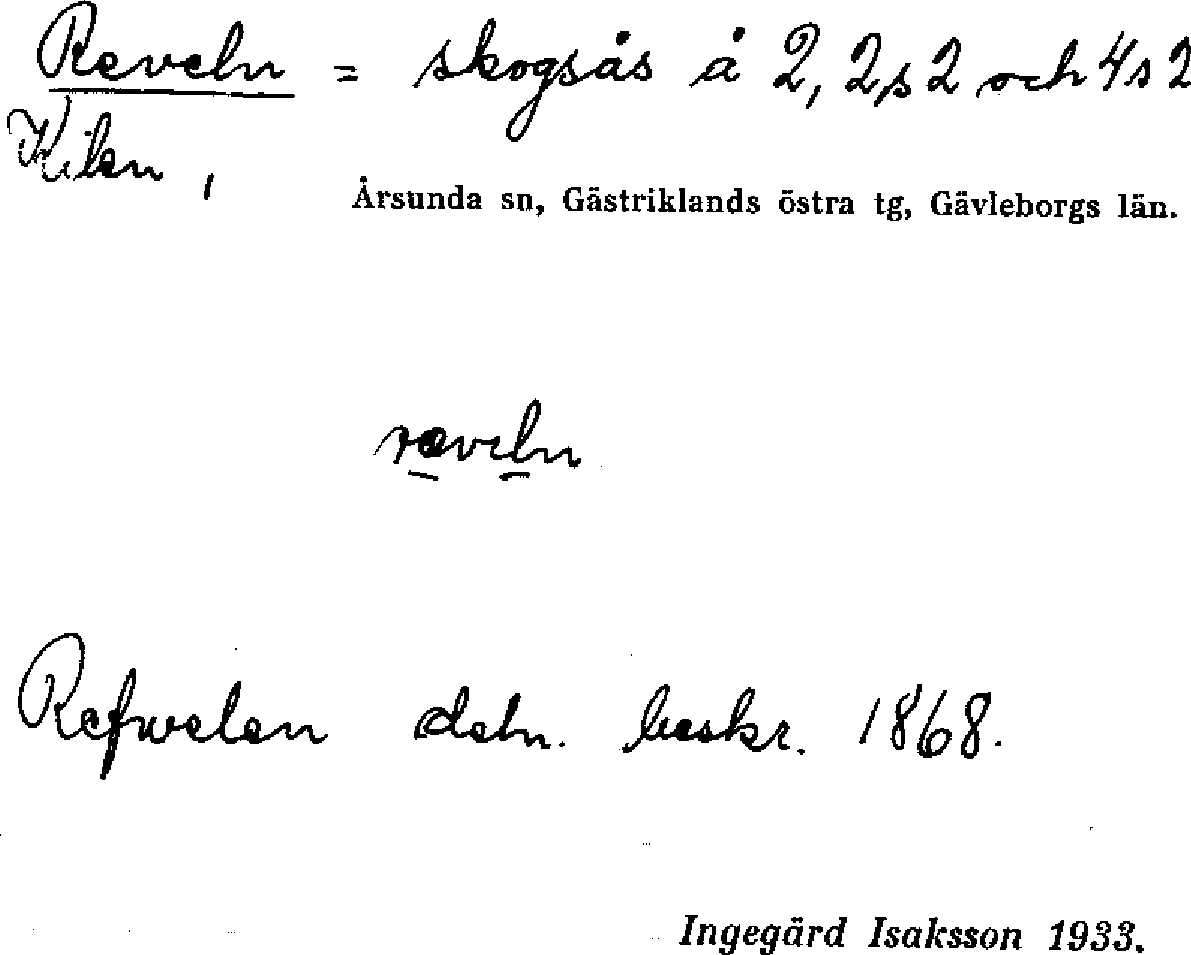 Reveln = skogsås å 2, 2s2 och 4s2
Kilen,
Årsunda sn, Gästriklands östra tg, Gävleborgs län.
ræveln
Refwelen dehn. beskr. 1868.
Ingegärd Isaksson 1933.